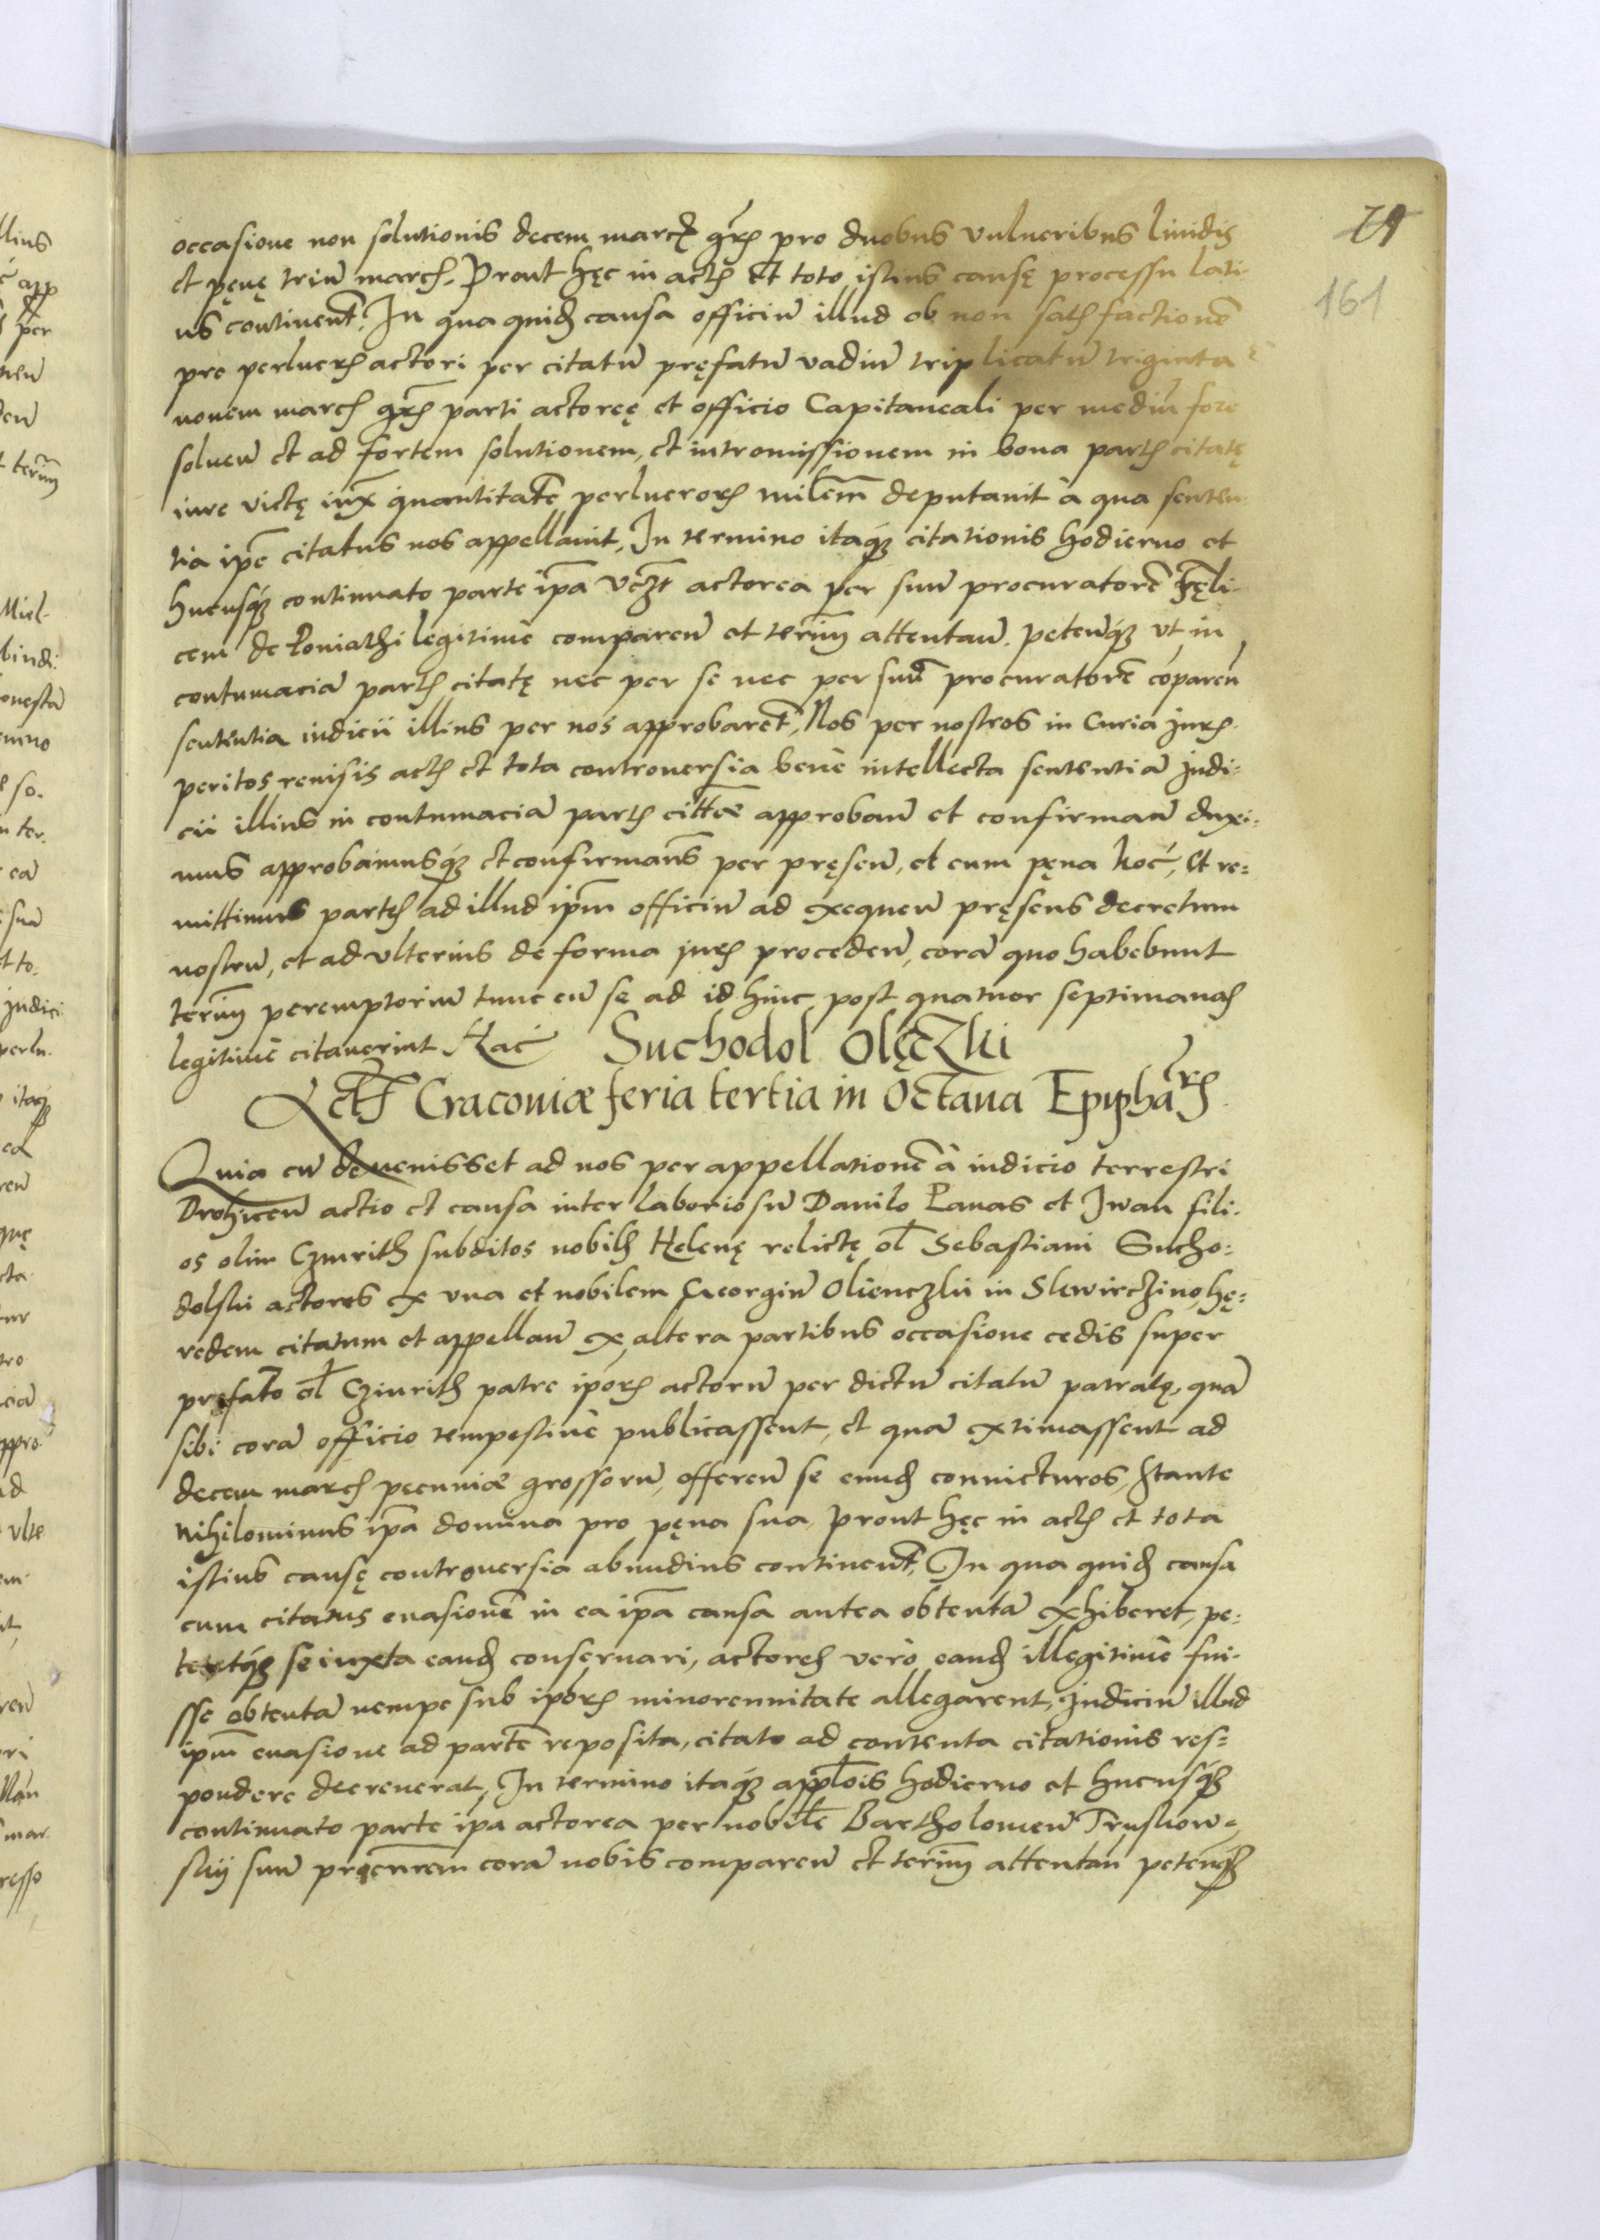 occasione non solutionis decem march grh pro duobus vulneribus lividis
et pęnę triū march. Prout hęc in actis et toto istius causę processu lati
us continent. In qua quid causa officiū illud ob non satisfactionē
pro perlucris actori per citatū pręfatū vadiū triplicatū triginta
novem march grh parti actoreę et officio Capitaneali per mediū fore
soluen et ad fortem solutionem, et intromissionem in bona partis citatę
iure victę iux quantitatē perlucrorum ministerialem deputavit à qua senten
tia ipē citatus nos appellavit, In termino itaq citationis hodierno et
hucusq continuato parte ipa actorea per suū procuratorē Fęli-
cem de Poniathi legitimè comparen et termin attentan. petenq ut in
contumaciā partis citatę nec per se nec per suū procuratorē cōparen
sententia iudicii illius per nos approbaret, Nos per nostros in Curia juris
peritos revisis actis et tota controversia benè intellecta sententiā judi-
cii illius in contumaciā partis cittæ approban et confirman duxi-
mus approbamusq et confirmans per pręsen, et cum pęna hoc, Et re=
mittimus partes ad illud ipm officiū ad exequen pręsens decretum
nostrū, et ad ulterius de forma juris proceden, corā quo habebunt
termin peremptoriū tunc cū se ad id hinc post quatuor septimanas
legitimè citaverint
Suchodol Olęczki
Act Cracoviæ feria tertia in Octava Epiphaniarum
Quia cū devenisset ad nos per appellationē à iudicio terrestri
Drohicen actio et causa inter laboriosū Danilo Panas et Iwan fili-
os olim Czmrith subditos nobilis Helenę relictę ol Sebastiani Sucho=
dolski actores ex una et nobilem Georgiū Olienczki in Skwirczino hę=
redem citatum et appellan ex altera partibus occasione cedis super
pręfato ol Czmrith patre iporum actorū per dictū citatū patratę, quā
sibi corā officio tempestivè publicassent, et quā extimassent ad
decem march pecuniæ grossorū, offeren se eund convicturos, stante
nihilominus ipa domina pro pęna sua, prout hęc in actis et tota
istius causę controversia abundius continent, In qua quid causa
cum citatus evasionē in ea ipa causa antea obtentā exhiberet, pe-
teretq se iuxta eand conservari, actores verò eand illegitimè fui-
sse obtentā nempe sub iporum minorennitate allegarent, judiciū illud
ipm evasione ad partē reposita, citato ad contenta citationis res=
pondere decreverat, In termino itaq applōis hodierno et hucusq
continuato parte ipa actorea per nobilē Bartholomeū Truskow=
skij suū procurem corā nobis comparen et termin attentan petenq